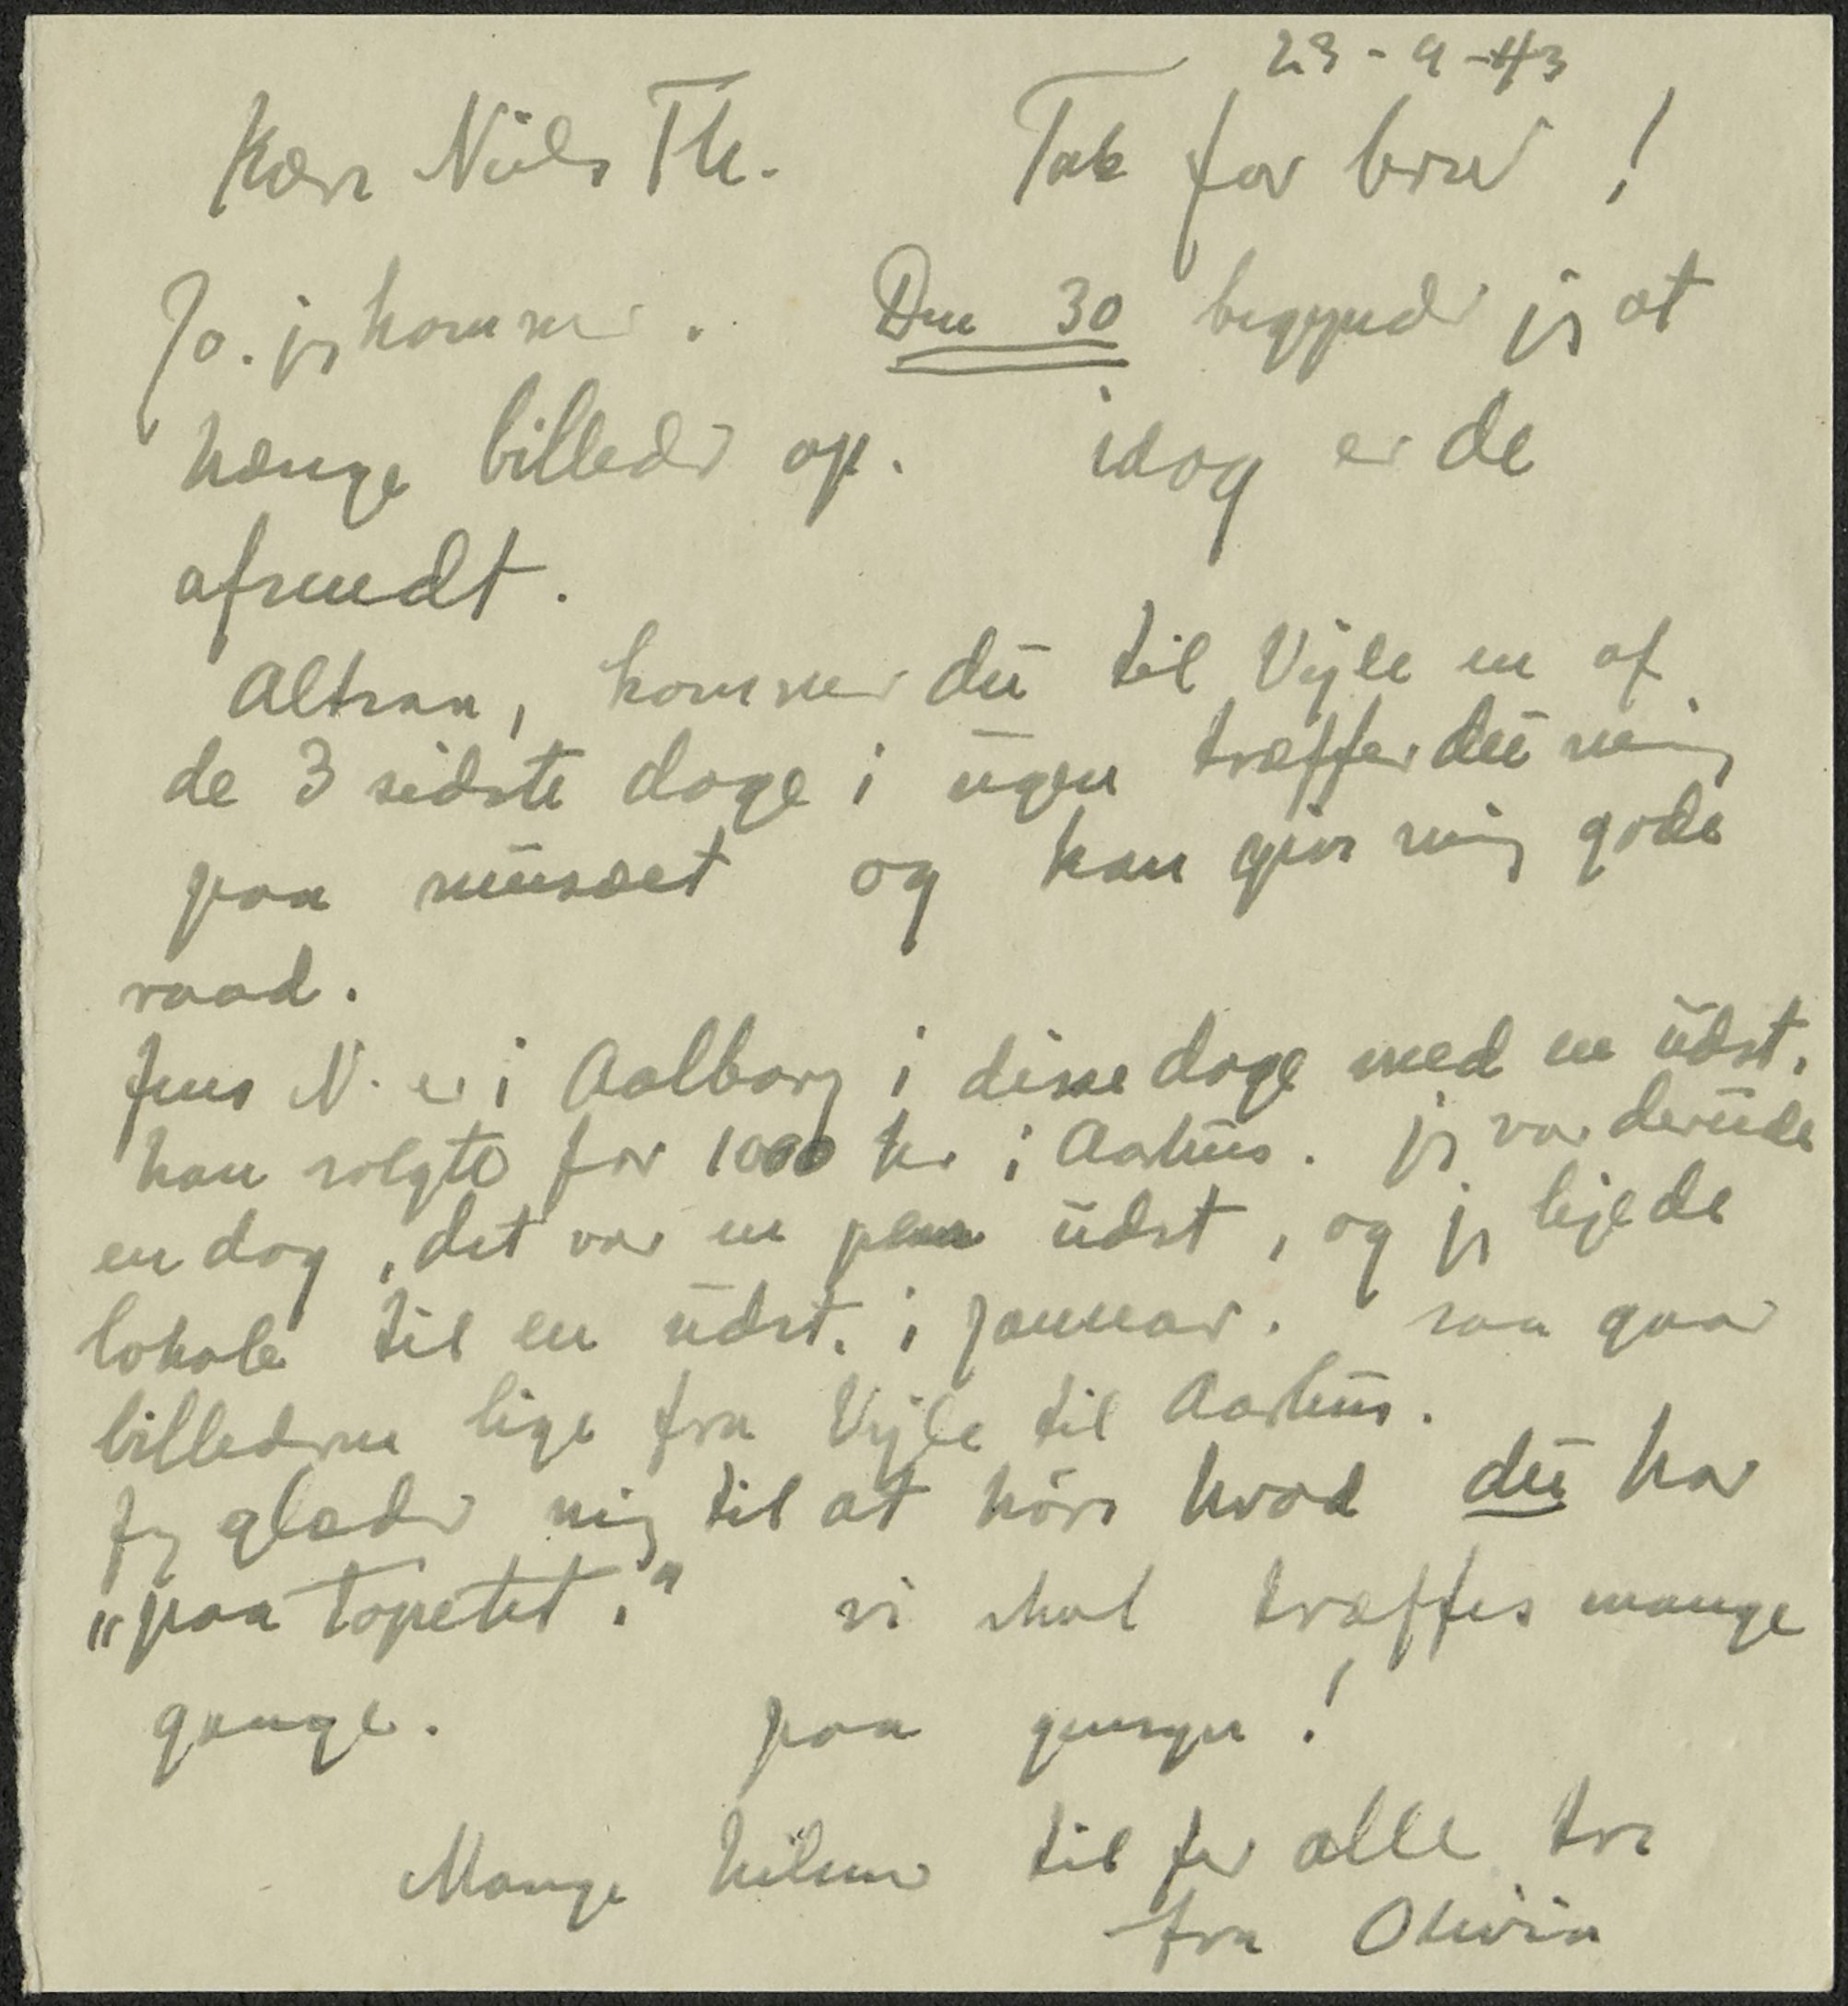 23-9-43
Kære Niels Th. Tak for brev!
Jo. jeg kommer. Den 30 begynder jeg at
hænge billeder op. idag er de
afsendt.
Altsaa, kommer du til Vejle en af
de 3 sidste dage i ugen træffer du mig
paa musæet og kan give mig gode
raad.
Jens N. er i Aalborg i disse dage med en udst.
han solgte for 1000 kr i Aarhus. jeg var derude
en dag, det var en pæn udst, og jeg lejede
lokale til en udst. i Januar. saa gaar
billederne lige fra Vejle til Aarhus.
Jeg glæder mig til at høre hvad du har
"paa Tapetet." vi skal træffes mange
gange. paa gensyn!
Mange hilsner til Jer alle tre
fra Olivia